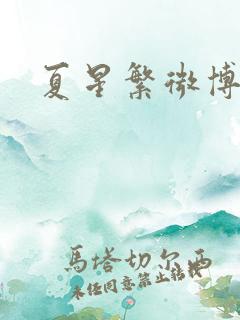 夏星繁微博
馬塔切尔西
未经同意禁止转载